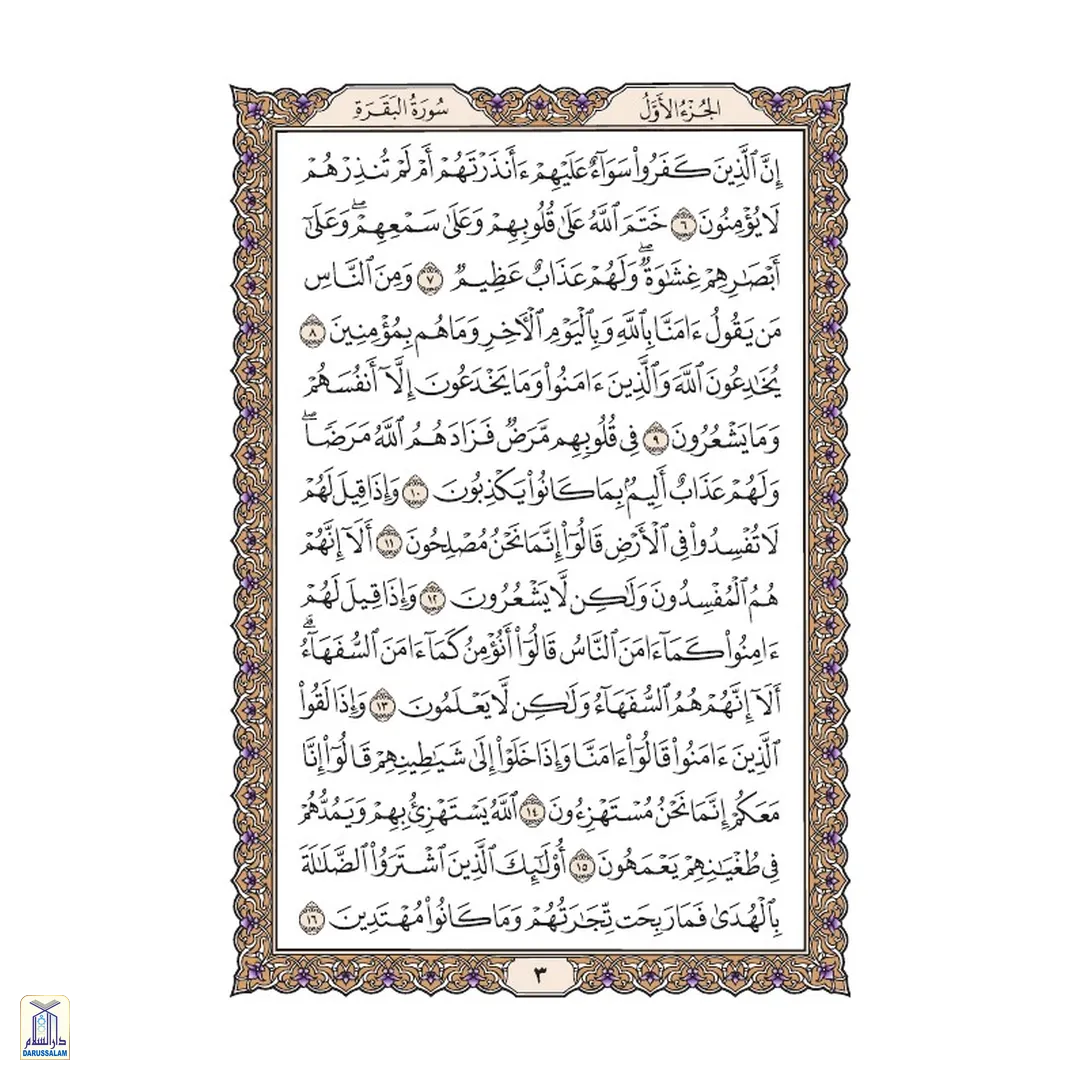 الجُزْءُ الأَوَّلُ
سُورَةُ البَقَرَةِ
إِنَّ ٱلَّذِينَ كَفَرُوا۟ سَوَآءٌ عَلَيْهِمْ ءَأَنذَرْتَهُمْ أَمْ لَمْ تُنذِرْهُمْ
لَا يُؤْمِنُونَ ٦ خَتَمَ ٱللَّهُ عَلَىٰ قُلُوبِهِمْ وَعَلَىٰ سَمْعِهِمْ ۖ وَعَلَىٰٓ
أَبْصَٰرِهِمْ غِشَٰوَةٌ ۖ وَلَهُمْ عَذَابٌ عَظِيمٌ ٧ وَمِنَ ٱلنَّاسِ
مَن يَقُولُ ءَامَنَّا بِٱللَّهِ وَبِٱلْيَوْمِ ٱلْءَاخِرِ وَمَا هُم بِمُؤْمِنِينَ ٨
يُخَٰدِعُونَ ٱللَّهَ وَٱلَّذِينَ ءَامَنُوا۟ وَمَا يَخْدَعُونَ إِلَّآ أَنفُسَهُمْ
وَمَا يَشْعُرُونَ ٩ فِى قُلُوبِهِم مَّرَضٌ فَزَادَهُمُ ٱللَّهُ مَرَضًا ۖ
وَلَهُمْ عَذَابٌ أَلِيمٌۢ بِمَا كَانُوا۟ يَكْذِبُونَ ١٠ وَإِذَا قِيلَ لَهُمْ
لَا تُفْسِدُوا۟ فِى ٱلْأَرْضِ قَالُوٓا۟ إِنَّمَا نَحْنُ مُصْلِحُونَ ١١ أَلَآ إِنَّهُمْ
هُمُ ٱلْمُفْسِدُونَ وَلَٰكِن لَّا يَشْعُرُونَ ١٢ وَإِذَا قِيلَ لَهُمْ
ءَامِنُوا۟ كَمَآ ءَامَنَ ٱلنَّاسُ قَالُوٓا۟ أَنُؤْمِنُ كَمَآ ءَامَنَ ٱلسُّفَهَآءُ ۗ
أَلَآ إِنَّهُمْ هُمُ ٱلسُّفَهَآءُ وَلَٰكِن لَّا يَعْلَمُونَ ١٣ وَإِذَا لَقُوا۟
ٱلَّذِينَ ءَامَنُوا۟ قَالُوٓا۟ ءَامَنَّا وَإِذَا خَلَوْا۟ إِلَىٰ شَيَٰطِينِهِمْ قَالُوٓا۟ إِنَّا
مَعَكُمْ إِنَّمَا نَحْنُ مُسْتَهْزِءُونَ ١٤ ٱللَّهُ يَسْتَهْزِئُ بِهِمْ وَيَمُدُّهُمْ
فِى طُغْيَٰنِهِمْ يَعْمَهُونَ ١٥ أُو۟لَٰٓئِكَ ٱلَّذِينَ ٱشْتَرَوُا۟ ٱلضَّلَٰلَةَ
بِٱلْهُدَىٰ فَمَا رَبِحَت تِّجَٰرَتُهُمْ وَمَا كَانُوا۟ مُهْتَدِينَ ١٦
٣
دار السلام
DARUSSALAM